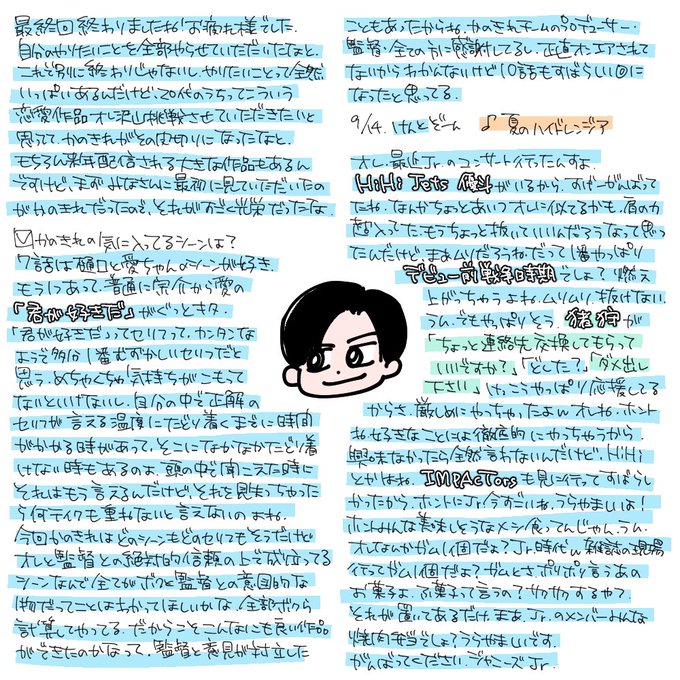 最終回終わりましたね!お疲れ様でした.
自分のやりたいことを全部やらせていただいたなと.
これで別に終わりじゃないし.やりたいことって全然
いっぱいあるんだけど20代のうちってこういう
恋愛作品オレ沢山挑戦させていただきたいと
思ってて.かのきれがその皮切りになったなと.
もちろん来年配信される大きな作品もあるん
ですけど、まずみなさんに最初に見ていただいたの
がかのきれだったので、それがすごく光栄だったな.
かのきれの気に入ってるシーンは?
7話は樋口と愛ちゃんのシーンが好き.
もう1つあって.普通に宗介から愛の
「君が好きだ」がぐっとキタ.
「君が好きだ」ってセリフって.カンタンな
ようで多分1番むずかしいセリフだと
思う.めちゃくちゃ気持ちがこもって
ないといけないし.自分の中で正解の
セリフが言える温度にたどり着くまでに時間
がかかる時があって.そこになかなかたどり着
けない時もあるのよ.頭の中で聞こえた時に
それはもう言えるんだけど、それを見失っちゃった
ら何テイクも重ねないと言えないのよね.
今回かのきれはどのシーンもどのセリフもそうだけど
オレと監督との絶対的信頼の上で成り立ってる
シーンなんで全てがボクと監督との意図的な
物だってことはわかってほしいかな.全部ボクら
計算してやってる.だからこそこんなにも良い作品
ができたのかなって.監督と意見が対立した
こともあったからね.かのきれチームのプロデューサー・
監督・全ての方に感謝してるし.正直オンエアされて
ないからわかんないけど10話もすばらしい回に
なったと思ってる.
9/14.けんとぞーん ♪夏のハイドレンジア
オレ.最近Jr.のコンサート行ったんすよ.
HiHi Jets 優斗がいるから.すげーがんばって
たね.なんかちょっとあいつオレに似てるかも.肩の力
超入ってたもうちょっと抜いていいんだろうなって思っ
たんだけど、まぁムリだろうね.だって1番やっぱり
デビュー前戦争時期でしょ?燃え
上がっちゃうよね.ムリムリ.抜けない.
うん.でもやっぱりそう.猪狩が
「ちょっと連絡先交換してもらって
いいですか?」「どした?」「ダメ出し
下さい」けっこうやっぱり応援してる
からさ.厳しめにやっちゃったよwオレね.ホント
ね好きなことには徹底的にやっちゃうから.
興味なかったら全然言わないんだけど.HiHi
とかはね.IMPACTorsも見に行ってすばらし
かったから.ホントにJr.今すごいね.うらやましいよ!
ホントみんな美味しそうなメシ食ってんじゃん.うん.
オレなんかガム1個だよ?Jr.時代w雑誌の現場
行ってガム1個だよ?ガムとさ.ポリポリ言うあの
お菓子よ.ふ菓子って言うの?サクサクするやつ?
それが置いてあるだけ.まぁ.Jr.のメンバーみんな
焼肉弁当でしょ?うらやましいです.
がんばってください.ジャニーズJr.